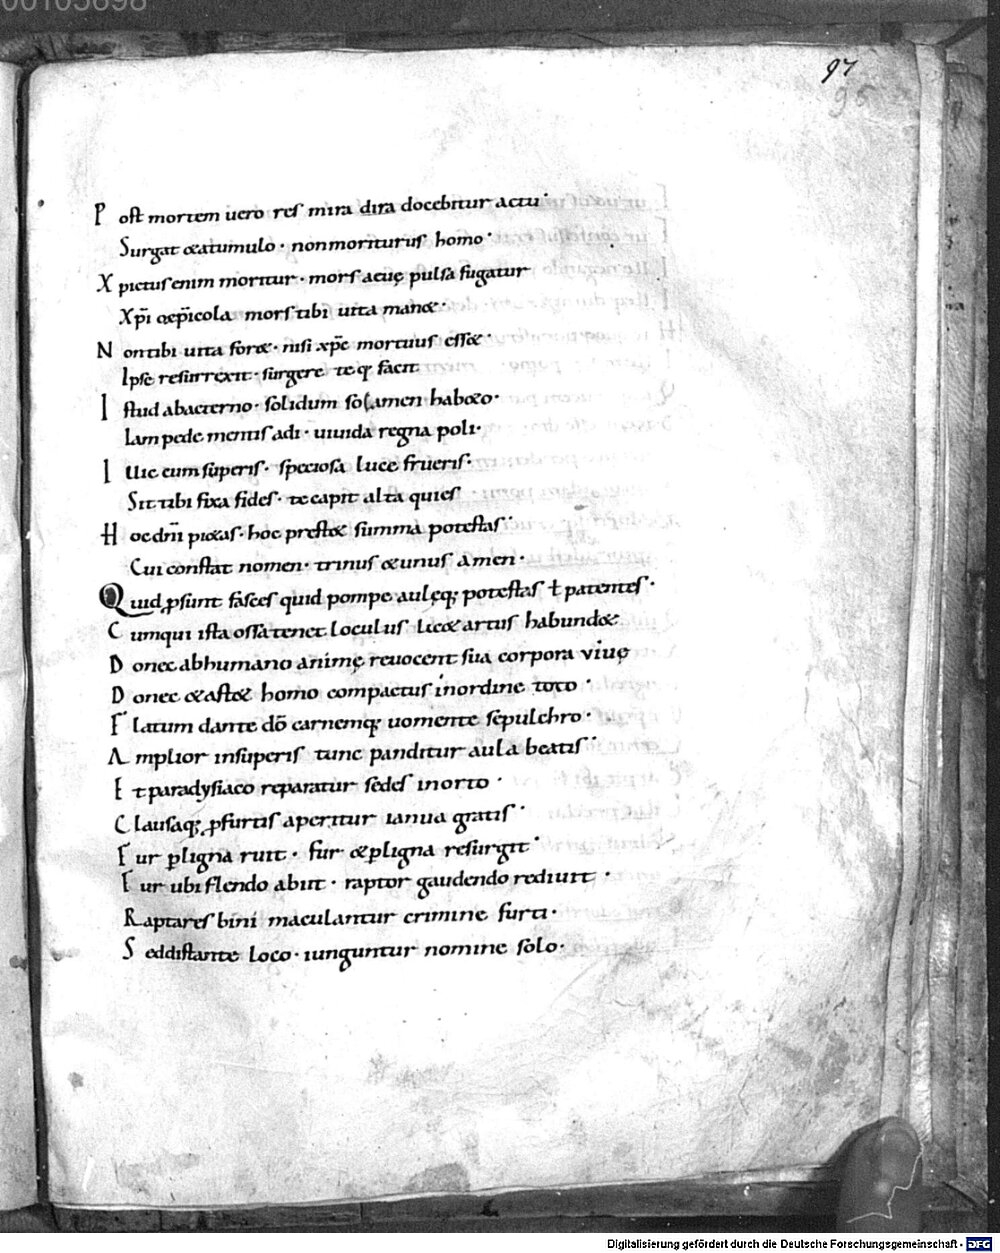 00105698
97
95
Post mortem uero res mira dira docebitur actu·
Surgat &atumulo · nonmoriturus homo·
Xpictus enim moritur · mors acuę pulsa fugatur
Xpi &epicola mors tibi uita man&·
Nontibi uita for& · nisi xpc mortuus ess&·
Ipse resurrexit · surgere teq; facit
Istud abaeterno · solidum solamen hab&o·
Iam pede mentis adi · uiuida regna poli·
Illic cum superis · speciosa luce frueris·
Sit tibi fixa fides · te capit alta quies
Hoc dni pi&as · hoc prest& summa potestas·
Cui constat nomen · trinus &unus Amen·
Quid psunt fasces quid pompe aulęq; potestas ł patentes·
Cumqui ista ossa tenet loculus lic& artus habund&
Donec abhumano animę reuocent sua corpora viuę
Donec &ast& homo compactus inordine toto·
Flatum dante dō carnemq; uomente sepulchro·
Amplior insuperis tunc panditur aula beatis·
Et paradysiaco reparatur sedes inorto·
Clausaq; pfurtis aperitur ianua gratis·
Fur pligna ruit · fur &pligna resurgit·
Fur ubi flendo abiit · raptor gaudendo rediuit·
Raptares bini maculantur crimine furti·
Seddistante loco · iunguntur nomine solo·
Digitalisierung gefördert durch die Deutsche Forschungsgemeinschaft - DFG